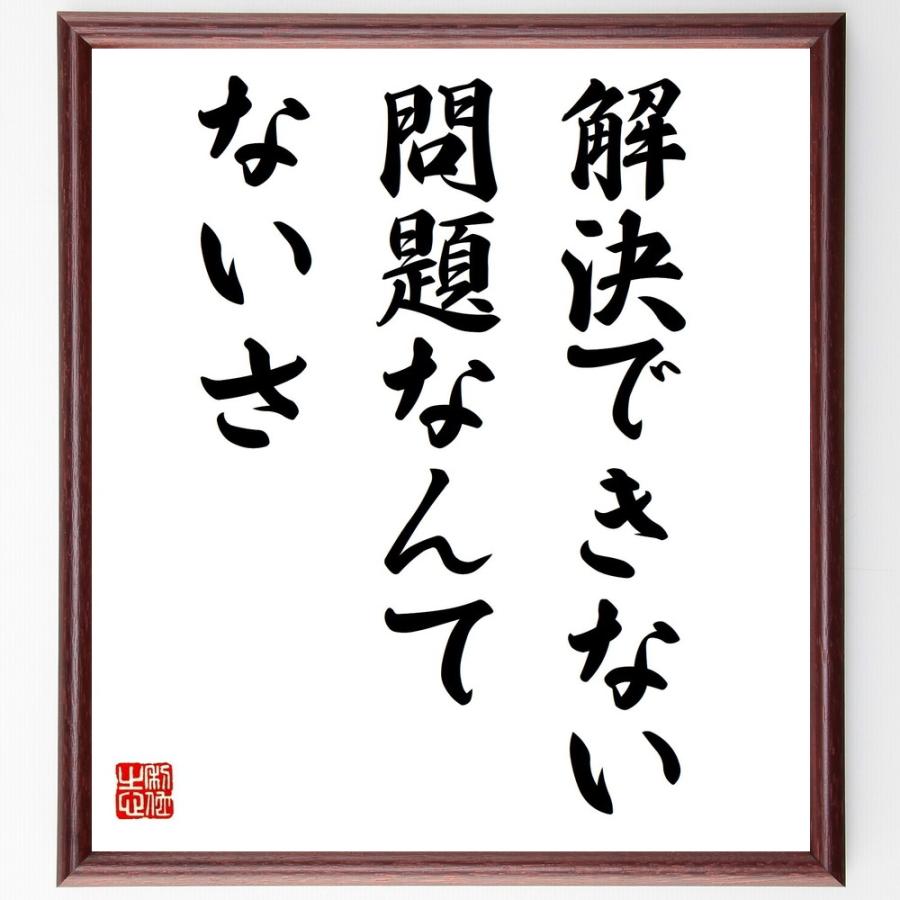 解決できない
問題なんて
ないさ